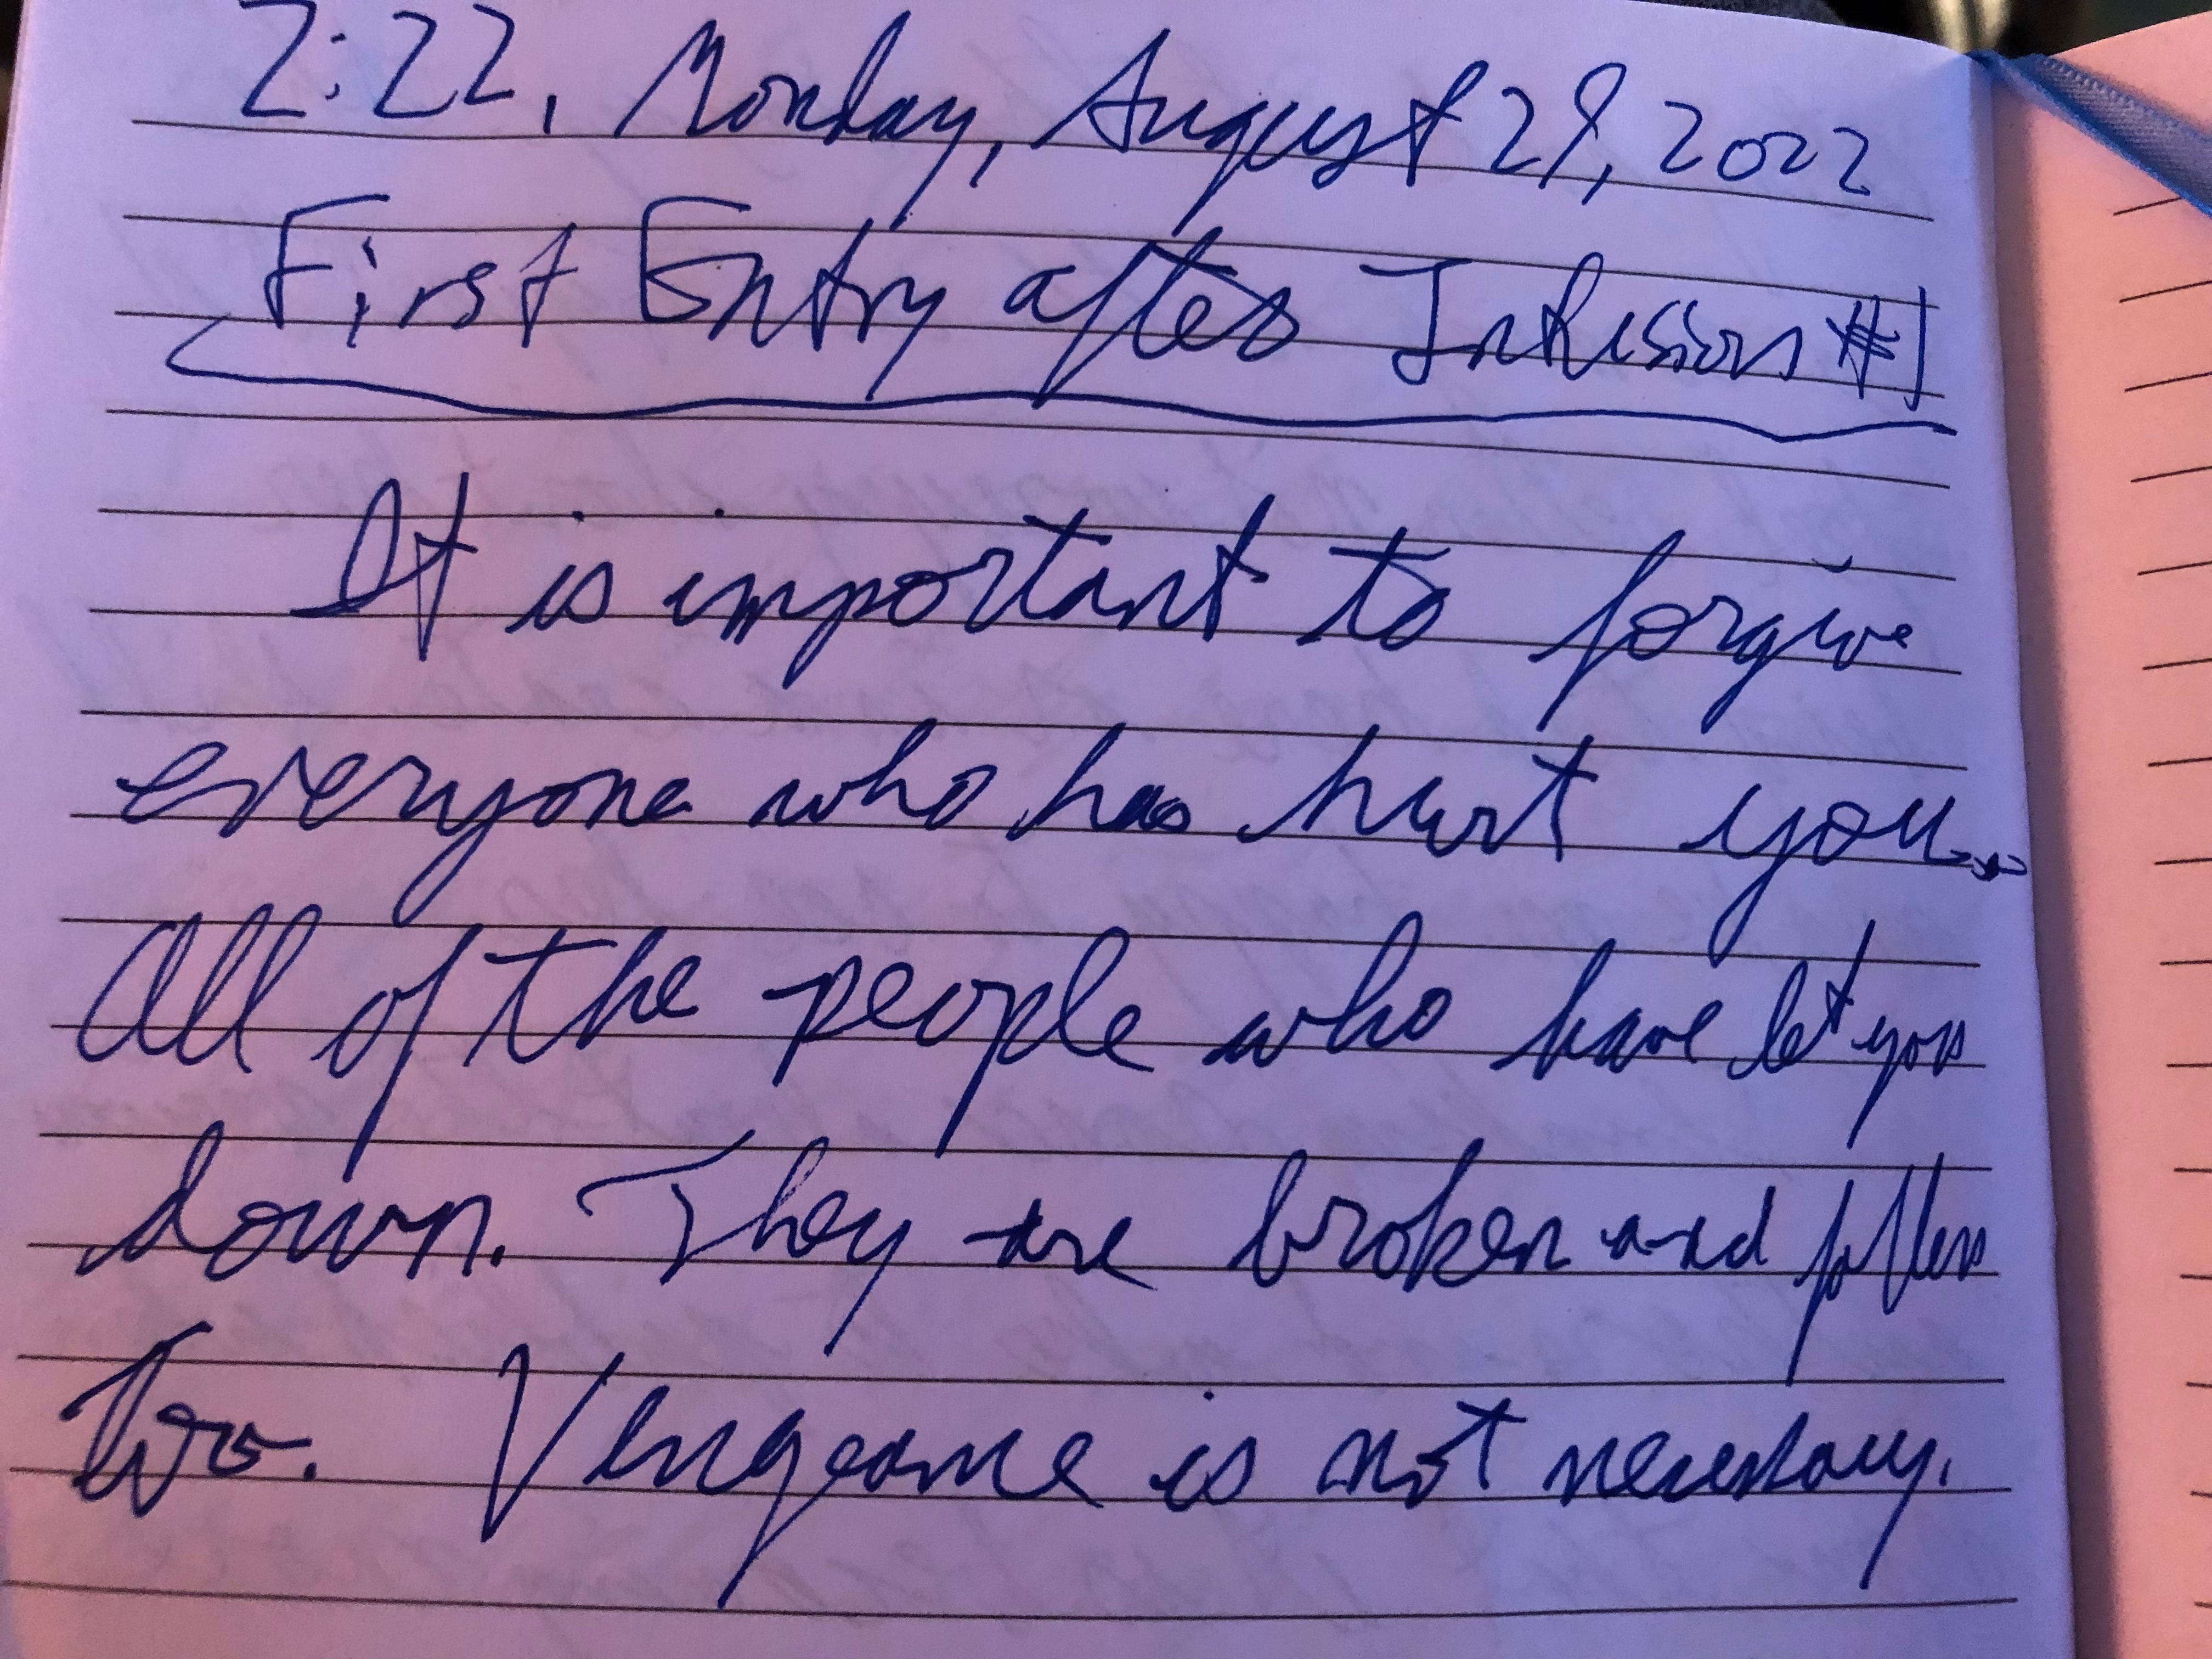 2:22, Monday, August 29, 2022
First Entry after Infusion #1
It is important to forgive
everyone who has hurt you...
All of the people who have let you
down. They are broken and fallen
too. Vengeance is not necessary.